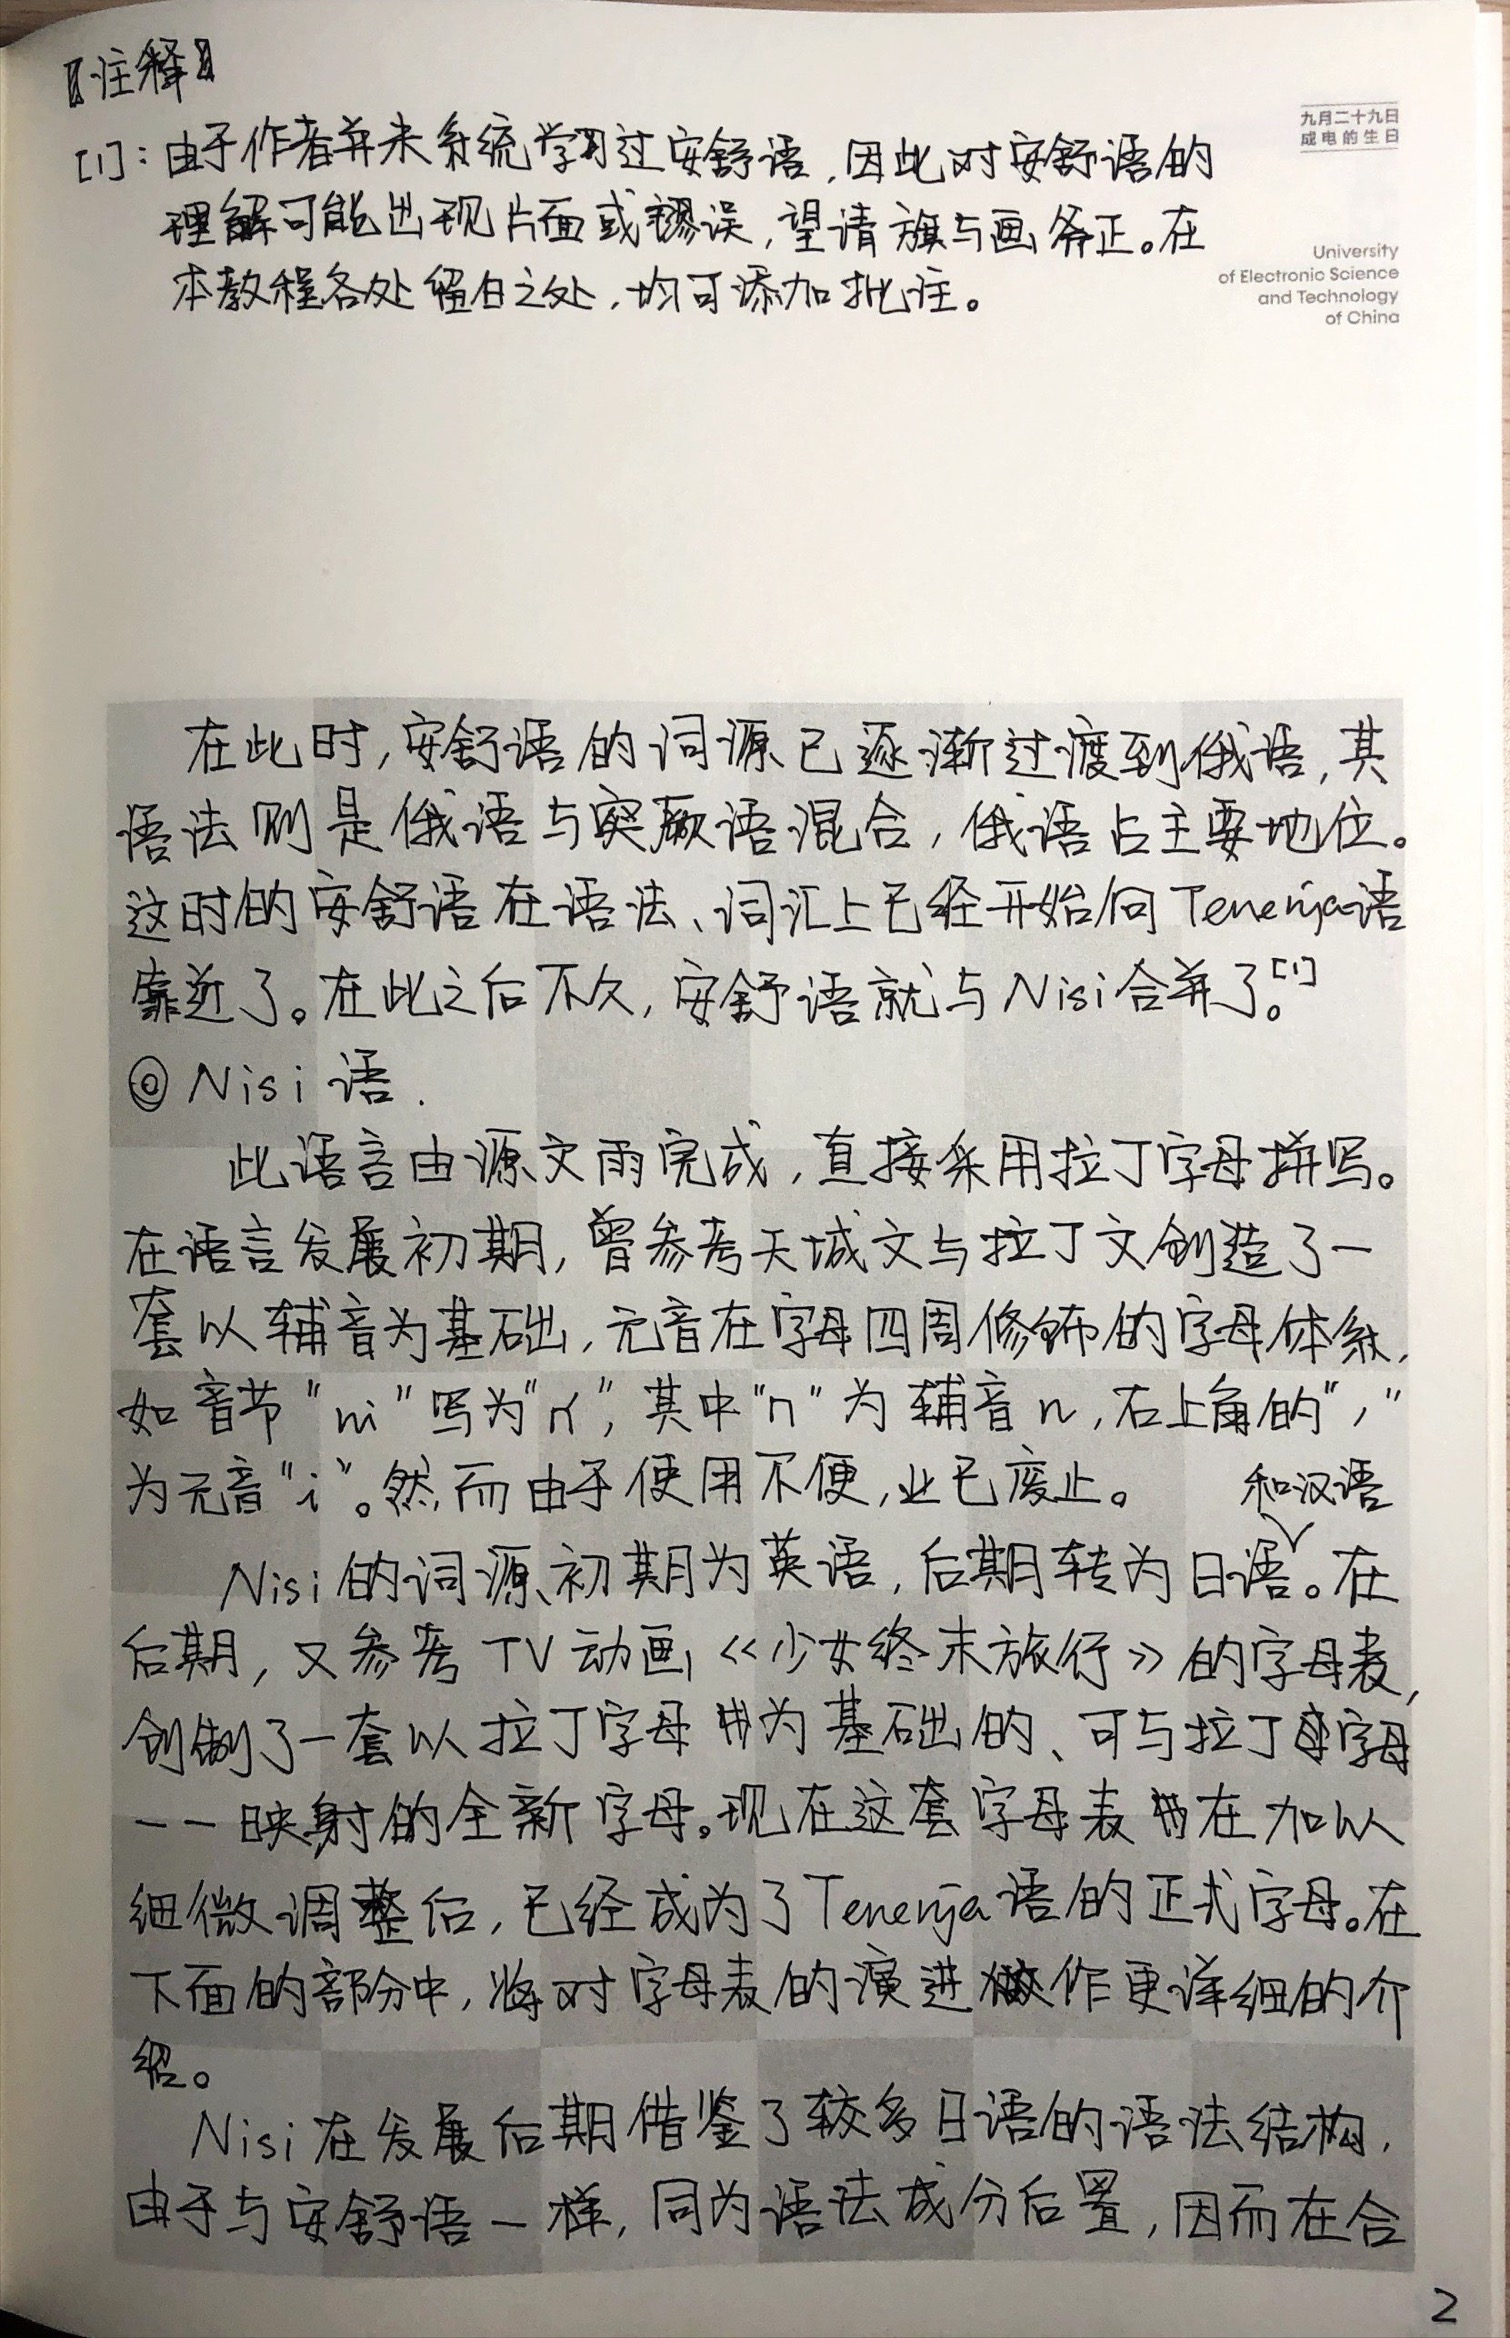 【注释】
[1]：由于作者并未系统学习过安舒语，因此对安舒语的
理解可能出现片面或謬误，望请旗与画斧正。在
本教程各处留白之处，均可添加批注。
九月二十九日
成电的生日
University
of Electronic Science
and Technology
of China
在此时，安舒语的词源已逐渐过渡到俄语，其
语法则是俄语与突厥语混合，俄语占主要地位。
这时的安舒语在语法、词汇上已经开始向Tenenja语
靠近了。在此之后不久，安舒语就与Nisi合并了。[1]
◎ Nisi 语.
此语言由源文雨完成，直接采用拉丁字母拼写。
在语言发展初期，曾参考天城文与拉丁文创造了一
套以辅音为基础，元音在字母四周修饰的字母体系，
如音节“ni”写为“n′”，其中“n”为辅音n，右上角的“′”
为元音“i”。然而由于使用不便，业已废止。
Nisi的词源初期为英语，后期转为日语和汉语。在
后期，又参考TV动画《少女终末旅行》的字母表，
创制了一套以拉丁字母为基础的、可与拉丁字母
一一映射的全新字母。现在这套字母表在加以
细微调整后，已经成为了Tenenja语的正式字母。在
下面的部分中，将对字母表的演进作更详细的介
绍。
Nisi在发展后期借鉴了较多日语的语法结构，
由于与安舒语一样，同为语法成分后置，因而在合
2